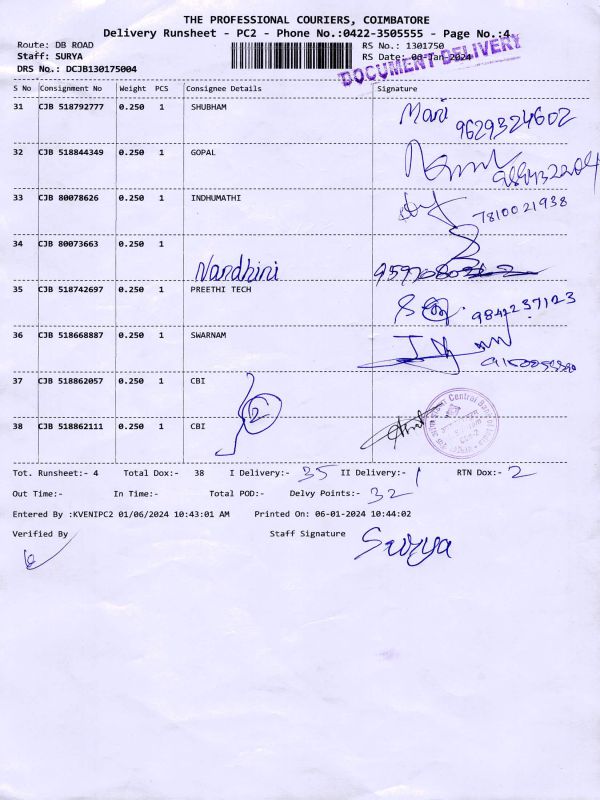 THE PROFESSIONAL COURIERS, COIMBATORE
Delivery Runsheet - PC2 - Phone No.:0422-3505555 - Page No.:4
Route: DB ROAD RS No.: 1301750
Staff: SURYA RS Date: -Jan-2024
DRS No.: DCJB130175004
DOCUMENT DELIVERY
S No Consignment No Weight PCS Consignee Details Signature
31 CJB 518792777 0.250 1 SHUBHAM Mari 9629324602
32 CJB 518844349 0.250 1 GOPAL
33 CJB 80078626 0.250 1 INDHUMATHI 7810021938
34 CJB 80073663 0.250 1 Nandhini
35 CJB 518742697 0.250 1 PREETHI TECH 9842237123
36 CJB 518668887 0.250 1 SWARNAM
37 CJB 518862057 0.250 1 CBI 2
38 CJB 518862111 0.250 1 CBI Central Bank of
Tot. Runsheet:- 4 Total Dox:- 38 I Delivery:- 35 II Delivery:- 1 RTN Dox:- 2
Out Time:- In Time:- Total POD:- Delvy Points:- 32
Entered By :KVENIPC2 01/06/2024 10:43:01 AM Printed On: 06-01-2024 10:44:02
Verified By Staff Signature Surya